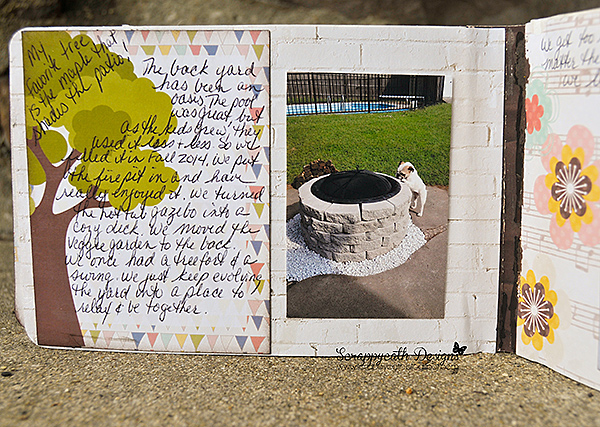 My
favorite tree
is the maple that
shades the patio!
The back yard
has been an
oasis. The pool
was great but
as the kids grew, they
used it less + less. So we
filled it in Fall 2014. We put
the fire pit in and have
really enjoyed it. We turned
the hot tub gazebo into a
cozy deck. We moved the
veggie garden to the back.
We once had a treefort & a
swing. We just keep evolving
the yard into a place to
relax & be together.
we get too
matter the
Scrappycath Designs